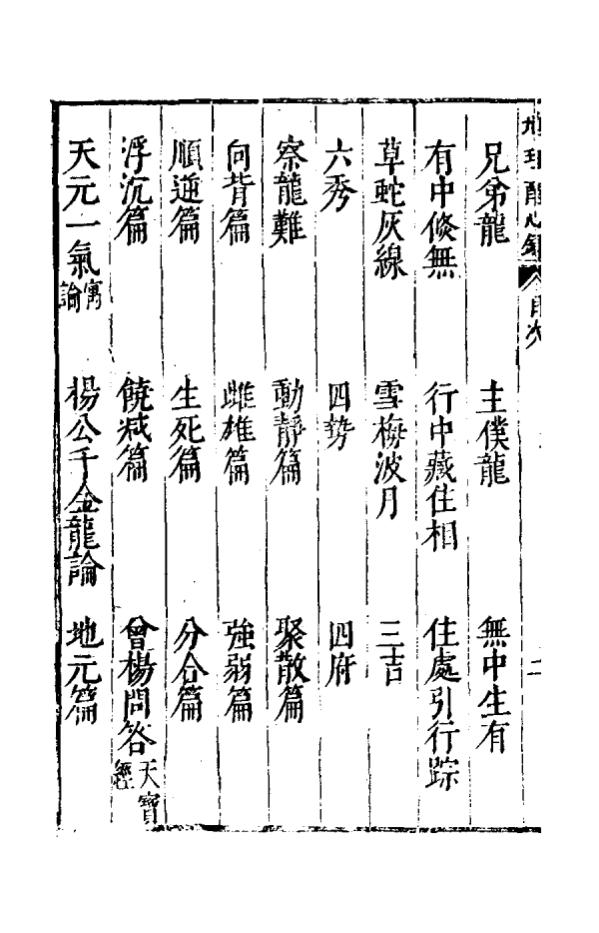 地理醒心錄 目次 二
兄弟龍 主僕龍 無中生有
有中倐無 行中藏住相 住處引行踪
草蛇灰線 雪梅波月 三吉
六秀 四勢 四府
察龍難 動靜篇 聚散篇
向背篇 雌雄篇 強弱篇
順逆篇 生死篇 分合篇
浮沉篇 饒减篇 曾楊問答天寶經
天元一氣寓論 楊公千金龍論 地元篇